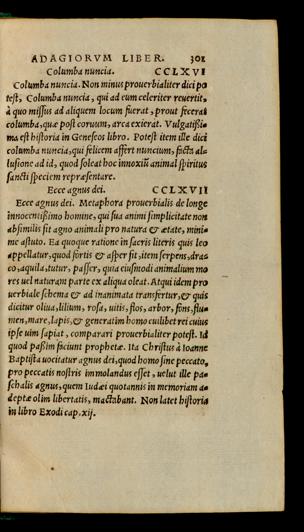 ADAGIORVM LIBER. 301
Columba nuncia. CCLXVI
Columba nuncia. Non minus prouerbialiter dici po
test, Columba nuncia, qui ad eum celeriter reuertit,
à quo missus ad aliquem locum fuerat, prout fecerat
columba, quæ post coruum, arca exierat. Vulgatissi-
ma est historia in Geneseos libro. Potest item ille dici
columba nuncia, qui felicem affert nuncium, facta al-
lusione ad id, quod soleat hoc innoxiũ animal spiritus
sancti speciem repræsentare.
Ecce agnus dei. CCLXVII
Ecce agnus dei. Metaphora prouerbialis de longe
innocentissimo homine, qui sua animi simplicitate non
absimilis sit agno animali pro natura & ætate, mini-
me astuto. Ea quoque ratione in sacris literis quis leo
appellatur, quod fortis & asper sit, item serpens, dra-
co, aquila, tutur, passer, quia eiusmodi animalium mo
res uel naturam parte ex aliqua oleat. Atqui idem pro
uerbiale schema & ad inanimata transfertur, & quis
dicitur oliua, lilium, rosa, uitis, flos, arbor, fons, flu-
men, mare, lapis, & generatim homo cuilibet rei cuius
ipse uim sapiat, comparari prouerbialiter potest. Id
quod passim faciunt prophetæ. Ita Christus à Ioanne
Baptista uocitatur agnus dei, quod homo sine peccato,
pro peccatis nostris immolandus esset, uelut ille pa-
schalis agnus, quem Iudæi quotannis in memoriam a-
deptæ olim libertatis, mactabant. Non latet historia
in libro Exodi cap. xij.